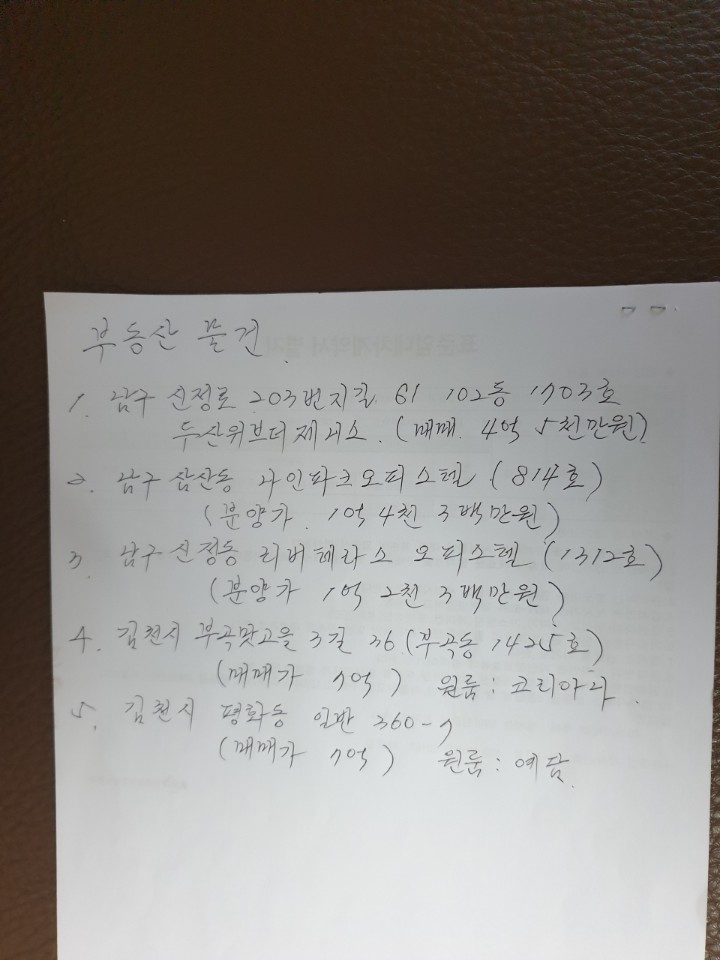 부동산 물건.
1. 남구 신정로 203번지길 61 102동 1703호
두산위브더제니스. (매매 4억 5천만원)
2. 남구 삼산동 파크오피스텔 (814호)
(분양가 1억 4천 3백만원)
3. 남구 신정동 리버테라스 오피스텔 (1312호)
(분양가 1억 2천 3백만원)
4. 김천시 부곡맛고을 3길 36 (부곡동 1425호)
(매매가 1억) 원룸: 코리아나.
5. 김천시 평화동 일반 360-1
(매매가 1억) 원룸: 예담.